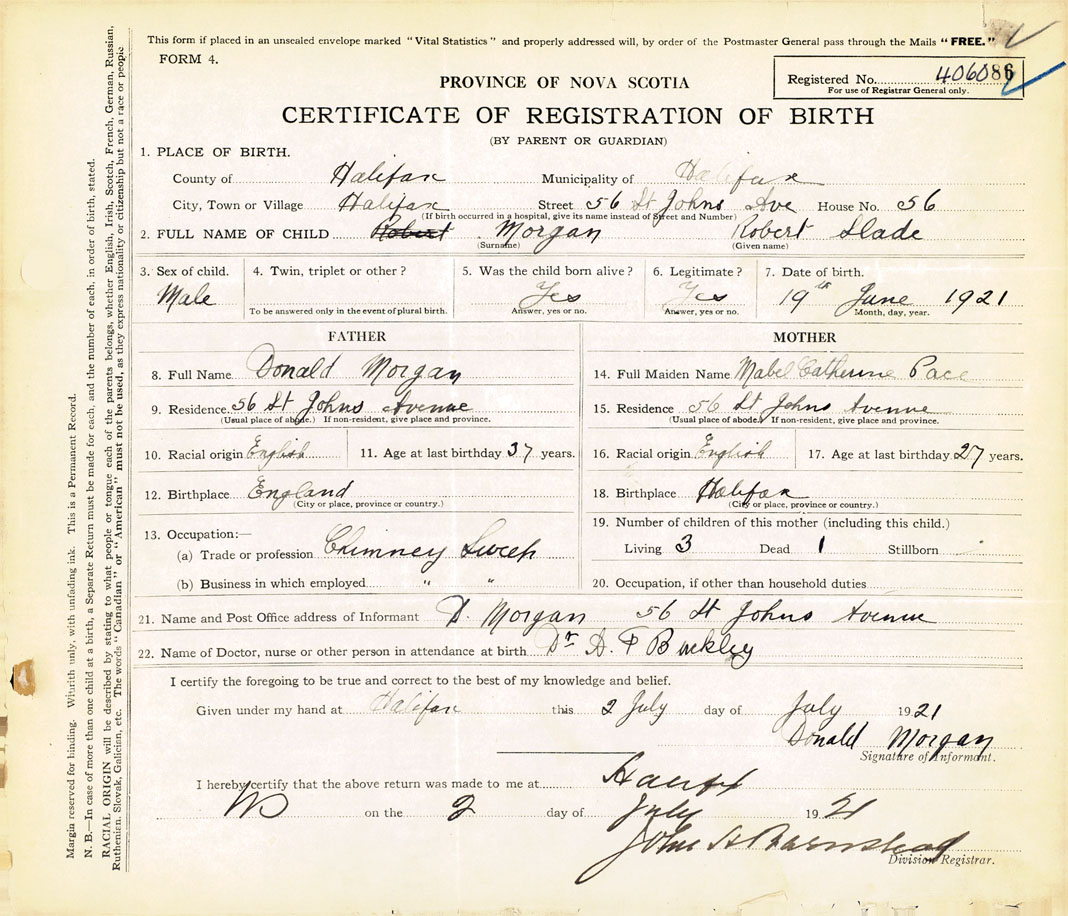 This form if placed in an unsealed envelope marked "Vital Statistics" and properly addressed will, by order of the Postmaster General pass through the Mails "FREE."
FORM 4.
Registered No. 406086
For use of Registrar General only.
PROVINCE OF NOVA SCOTIA
CERTIFICATE OF REGISTRATION OF BIRTH
(BY PARENT OR GUARDIAN)
1. PLACE OF BIRTH.
County of Halifax Municipality of Halifax
City, Town or Village Halifax Street 56 St Johns Ave House No. 56
(If birth occurred in a hospital, give its name instead of Street and Number)
2. FULL NAME OF CHILD Robert Morgan Robert Slade
(Surname) (Given name)
3. Sex of child. 4. Twin, triplet or other? 5. Was the child born alive? 6. Legitimate? 7. Date of birth.
Male Yes Yes 19th June 1921
To be answered only in the event of plural birth. Answer, yes or no. Answer, yes or no. Month, day, year.
FATHER MOTHER
8. Full Name Donald Morgan 14. Full Maiden Name Mabel Catherine Pace
9. Residence 56 St Johns Avenue 15. Residence 56 St Johns Avenue
(Usual place of abode.) If non-resident, give place and province. (Usual place of abode.) If non-resident, give place and province.
10. Racial origin English 11. Age at last birthday 37 years. 16. Racial origin English 17. Age at last birthday 27 years.
12. Birthplace England 18. Birthplace Halifax
(City or place, province or country.) (City or place, province or country.)
13. Occupation:— 19. Number of children of this mother (including this child.)
(a) Trade or profession Chimney Sweep Living 3 Dead 1 Stillborn
(b) Business in which employed " " 20. Occupation, if other than household duties
21. Name and Post Office address of Informant D. Morgan 56 St Johns Avenue
22. Name of Doctor, nurse or other person in attendance at birth Dr A. F Buckley
I certify the foregoing to be true and correct to the best of my knowledge and belief.
Given under my hand at Halifax this 2 July day of July 1921
Donald Morgan
Signature of Informant.
I hereby certify that the above return was made to me at Halifax
NS on the 2 day of July 1921
John A Barnstead
Division Registrar.
Margin reserved for binding. Write with only, with unfading ink. This is a Permanent Record.
N. B.—In case of more than one child at a birth, a Separate Return must be made for each, and the number of each, in order of birth, stated.
RACIAL ORIGIN will be described by stating to what people or tongue each of the parents belongs, whether English, Irish, Scotch, French, German, Russian,
Ruthenien, Slovak, Galician, etc. The words "Canadian" or "American" must not be used, as they express nationality or citizenship but not a race or people